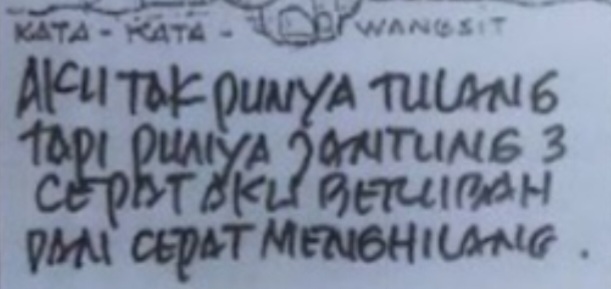 KATA - KATA - WANGSIT
AKU TAK PUNYA TULANG
TAPI PUNYA JANTUNG 3
CEPAT AKU BERUBAH
DAN CEPAT MENGHILANG .